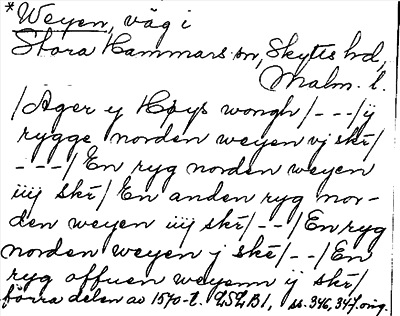 *Weyen, väg i
Stora Hammars sn, Skytts hd,
Malm. l.
/Ager y Høys wongh/---/ij
rygge norden weyen vj skē/
---/En ryg norden weyen
iiij skē/En anden ryg nor-
den weyen iiij skē/--/En ryg
norden weyen j skē/--/En
ryg offuen weyenn ij skē/
förra delen av 1570-t. LSLB1, ss. 346, 347. orig.